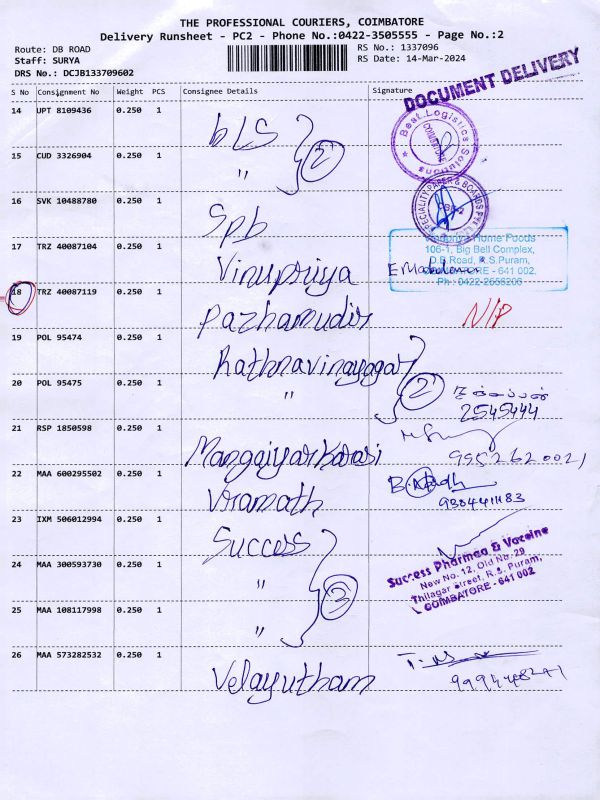 THE PROFESSIONAL COURIERS, COIMBATORE
Delivery Runsheet - PC2 - Phone No.:0422-3505555 - Page No.:2
Route: DB ROAD
Staff: SURYA
DRS No.: DCJB133709602
RS No.: 1337096
RS Date: 14-Mar-2024
S No Consignment No Weight PCS Consignee Details Signature
DOCUMENT DELIVERY
14 UPT 8109436 0.250 1 bLS
Best Logistics Solutions
COIMBATORE
15 CUD 3326904 0.250 1 " 2
16 SVK 10488780 0.250 1 Spb
SPECIALITY PAPER & BOARDS PVT
17 TRZ 40087104 0.250 1 Vinupriya
Home Foods
106-1, Big Bell Complex,
D.B.Road, R.S.Puram,
COIMBATORE - 641 002.
Ph : 0422-2556206
18 TRZ 40087119 0.250 1 Pazhamudir N/P
19 POL 95474 0.250 1 Rathnavinayagar
20 POL 95475 0.250 1 " 2
2545444
21 RSP 1850598 0.250 1 Manggiyarkarasi
9952620021
22 MAA 600295502 0.250 1 Viramath
9384411183
23 IXM 506012994 0.250 1 Success
Success Pharmea & Vaccine
New No. 12, Old No. 29
Thilagar Street, R.S. Puram,
COIMBATORE - 641 002
24 MAA 300593730 0.250 1 "
25 MAA 108117998 0.250 1 " 3
26 MAA 573282532 0.250 1 Velayutham